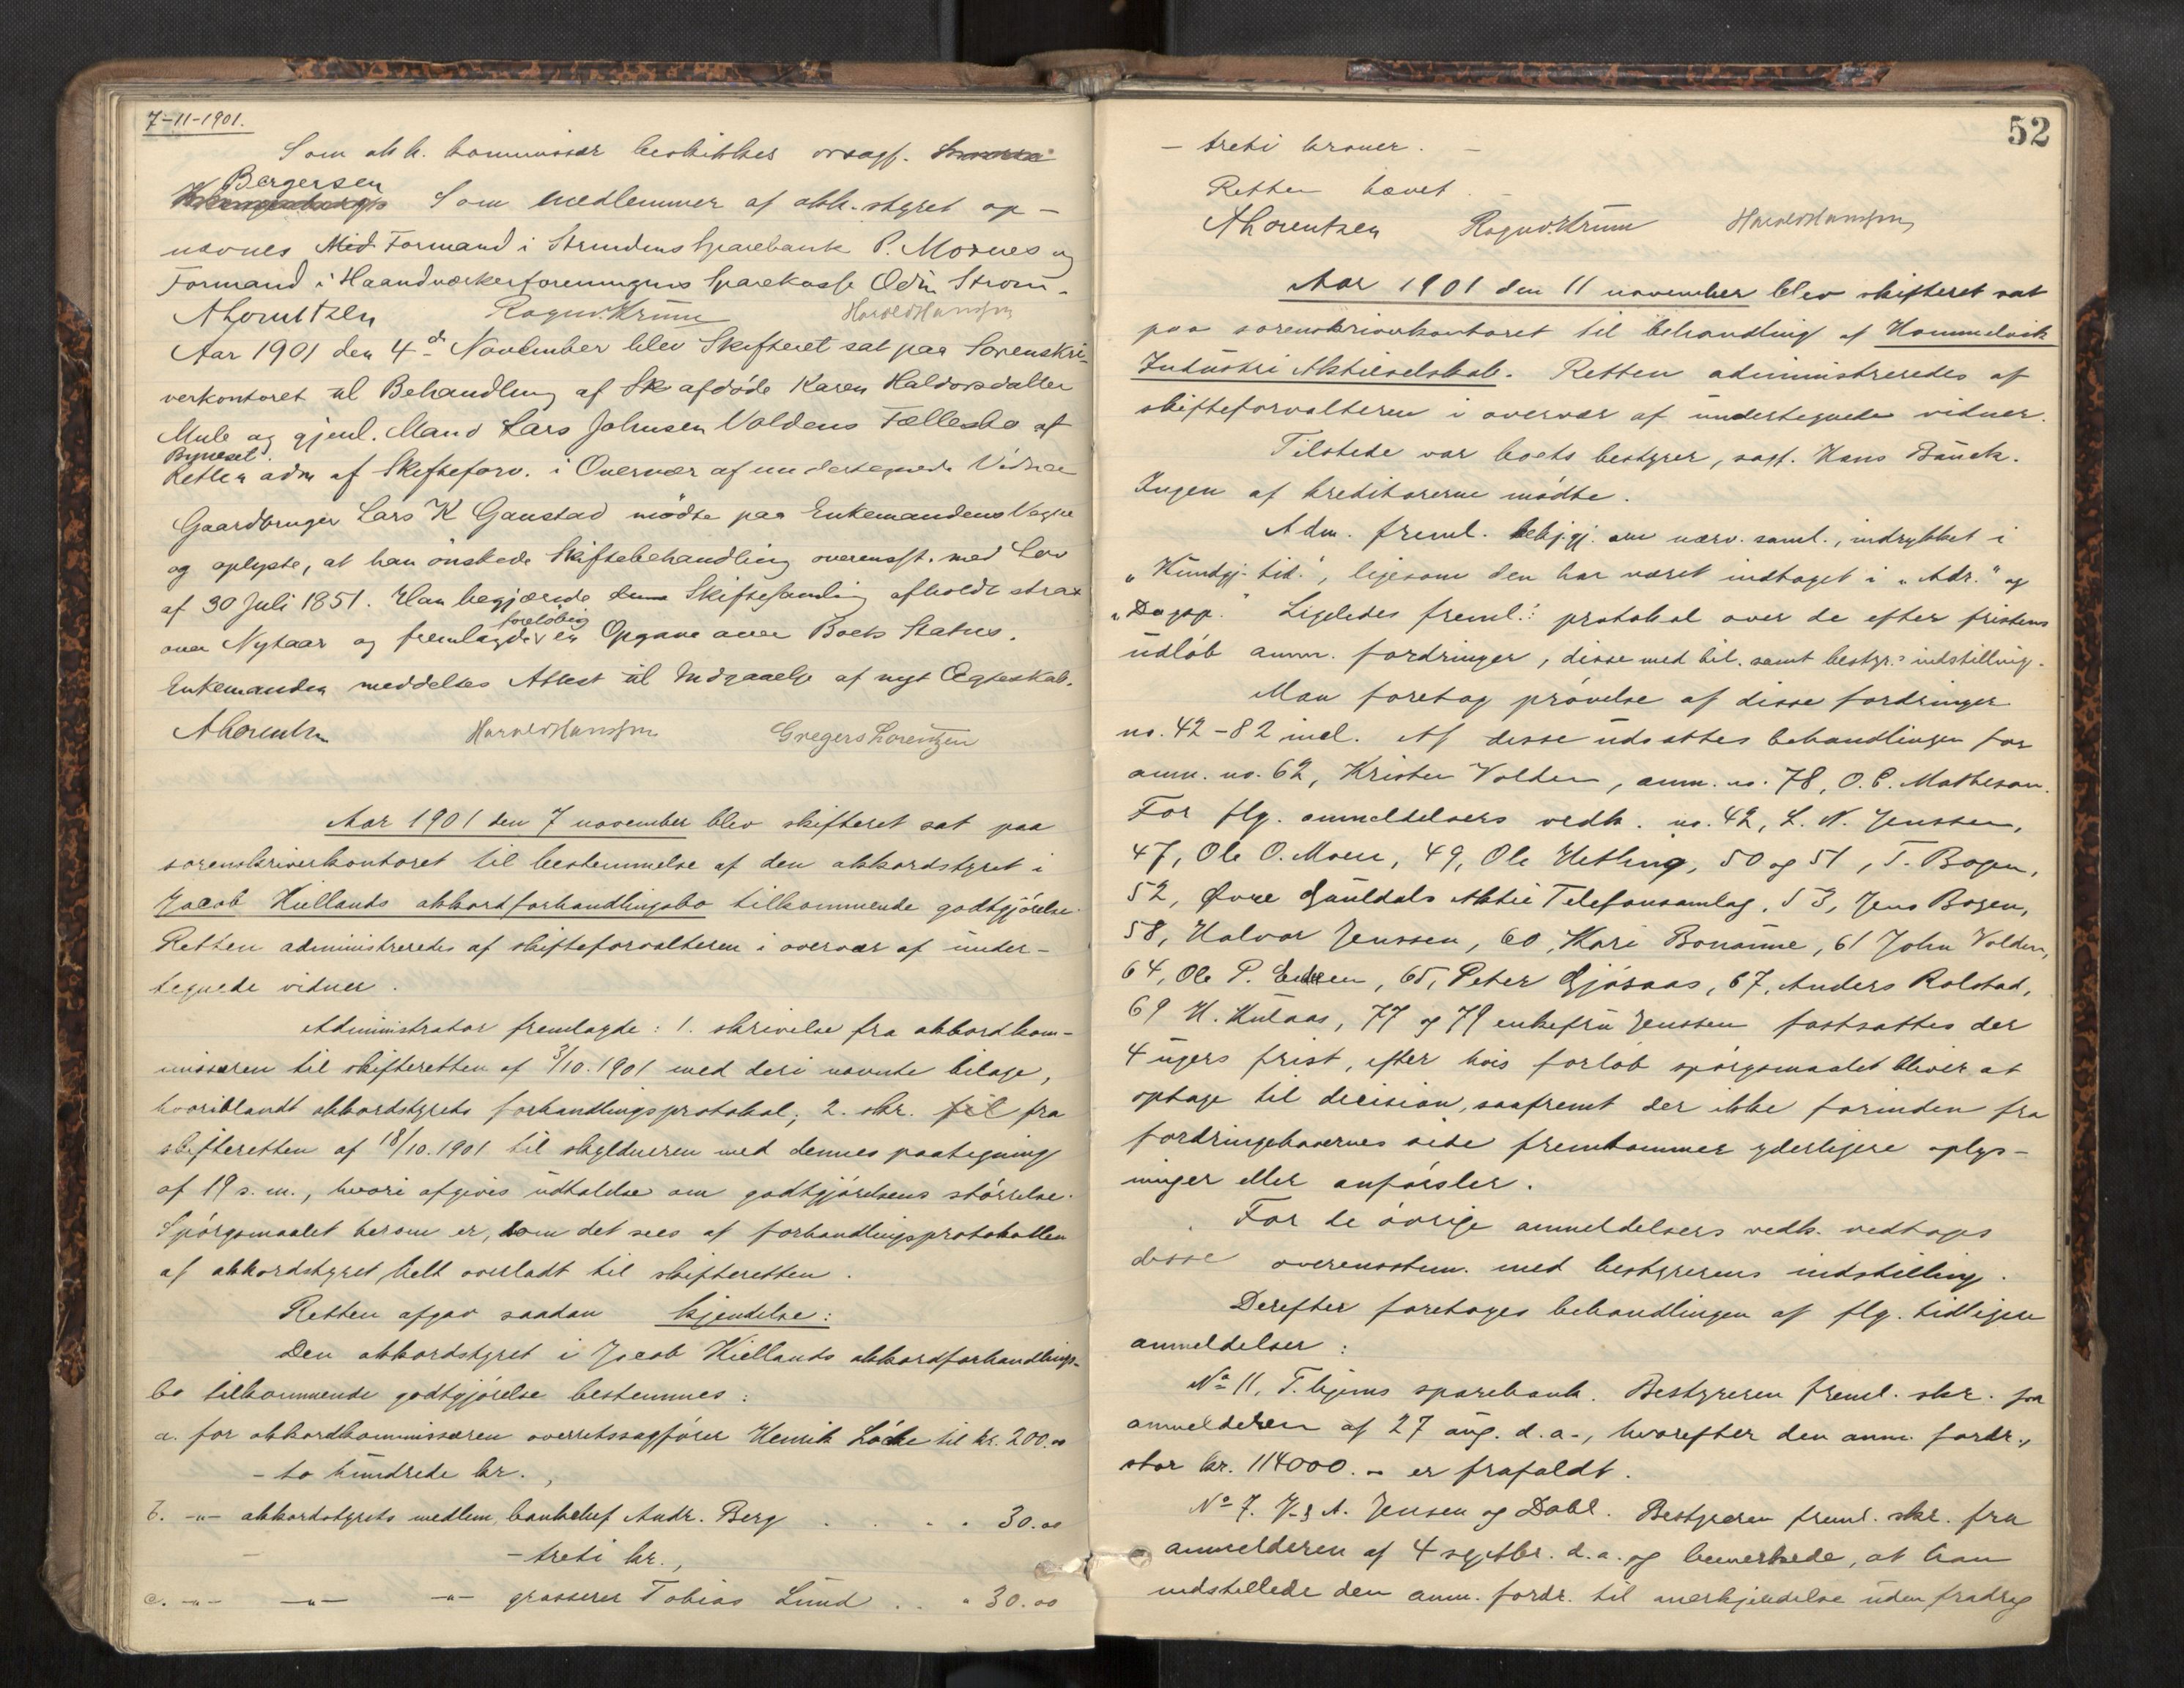 7-11-1901.
Som akk. kommissær beskikkes orsagf.
Bergersen
Som medlemmer af akk.-styret op-
nævnes Mid Formand i Strindens Sparebank P. Moxnes og
Formand i Haandværkerforeningens Sparekasse Odin Strøm.
A Lorentzen Ragnv. Krüm Harold Hansson
Aar 1901 den 4de November blev Skifteret sat paa Sorenskri-
verkontoret til Behandling af Sk afdøde Karen Haldorsdatter
Mule og gjenl. Mand Lars Johnsen Voldens Fællesbo af
Bynesset.
Retten adm af Skifteforv. i Overvær af undertegnede Vidner
Gaardbruger Lars K Ganstad mødte paa Enkemandens Vegne
og oplyste, at han ønskede Skiftebehandling overensst. med Lov
af 30 Juli 1851. Han begjærede Skiftesamling afholdt strax
over Nytaar og fremlagde foreløbig en Opgave over Boets Status.
Enkemanden meddeltes Attest til Indgaaelse af nyt Ægteskab.
A Lorentzen Harold Hansson Gregers Lorentzen
Aar 1901 den 7 november blev skifteret sat paa
sorenskriverkontoret til bestemmelse af den akkordstyret i
Jacob Kiellands akkordforhandlingsbo tilkommende godtgjörelse.
Retten administreredes af skifteforvalteren i overvær af under-
tegnede vidner.
Administrator fremlagde: 1. skrivelse fra akkordkom-
missæren til skifteretten af 3/10.1901 med deri nævnte bilage,
hvoriblandt akkordstyrets forhandlingsprotokol, 2. skr. til fra
skifteretten af 18/10.1901 til skyldneren med dennes paategning
af 19 s.m., hvori afgives udtalelse om godtgjörelsens størrelse.
Spörgsmaalet herom er, som det sees af forhandlingsprotokollen
af akkordstyret helt overladt til skifteretten.
Retten afgav saadan kjendelse:
Den akkordstyret i Jacob Kiellands akkordforhandlings-
bo tilkommende godtgjörelse bestemmes:
a. for akkordkommissæren overretssagförer Henrik Löcke til kr. 200.00
- to hundrede kr.,
b. -"- akkordstyrets medlem, bankchef Andr. Berg . . . . 30.00
- treti kr.,
c. -"- -"- -"- grosserer Tobias Lund . . . 30.00
52
- treti kroner. -
Retten hævet. -
A Lorentzen Ragnv. Krüm Harold Hansson
Aar 1901 den 11 november blev skifteret sat
paa sorenskriverkontoret til behandling af Hommelvik
Industri Aktieselskab. Retten administreredes af
skifteforvalteren i overvær af undertegnede vidner.
Tilstede var boets bestyrer, sagf. Hans Bauck.
Ingen af kreditorerne mödte.
Adm. freml. bekjgj. om nærv. saml., indrykket i
"Kundgj-tid.", ligesom den har været indtaget i "Adr." og
"Dagsp." Ligeledes freml.: protokol over de efter fristens
udlöb anm. fordringer, disse med bil. samt bestyr.s indstilling.
Man foretog prövelse af disse fordringer
no. 42-82 incl. Af disse udsattes behandlingen for
anm. no. 62, Krister Volden, anm. no. 78, O. C. Mathesan.
For flg. anmeldelsers vedk. no. 42, L. N. Jenssen,
47, Ole O. Moen, 49, Ole Hetling, 50 og 51, T. Bogen,
52, Øvre Guldals Aktie Telefonsamlag, 53, Jens Bogen,
58, Halvor Jenssen, 60, Kari Bonäune, 61 John Volden,
64, Ole P. Eidem, 65, Peter Gjösaas, 67, Anders Rolstad,
69 H. Hulaas, 77 og 79 enkefru Jenssen fastsattes der
4 ugers frist, efter hvis forlöb spörgsmaalet bliver at
optage til decision, saafremt der ikke forinden fra
fordringshavernes side fremkommer yderligere oplys-
ninger eller anförsler.
For de övrige anmeldelsers vedk. vedtoges
disse overensstem. med bestyrerens indstilling.
Derefter foretoges behandlingen af flg. tidligere
anmeldelser:
No 11, T.hjems sparebank. Bestyreren freml. skr. fra
anmelderen af 27 aug. d.a., hvorefter den anm. fordr.,
stor kr. 114000.- er frafaldt.
No 7. Jensen og Dahl. Bestyreren freml. skr. fra
anmelderen af 4 septbr. d.a. og bemerkede, at han
indstillede den anm. fordr. til anerkjendelse uden fradrag